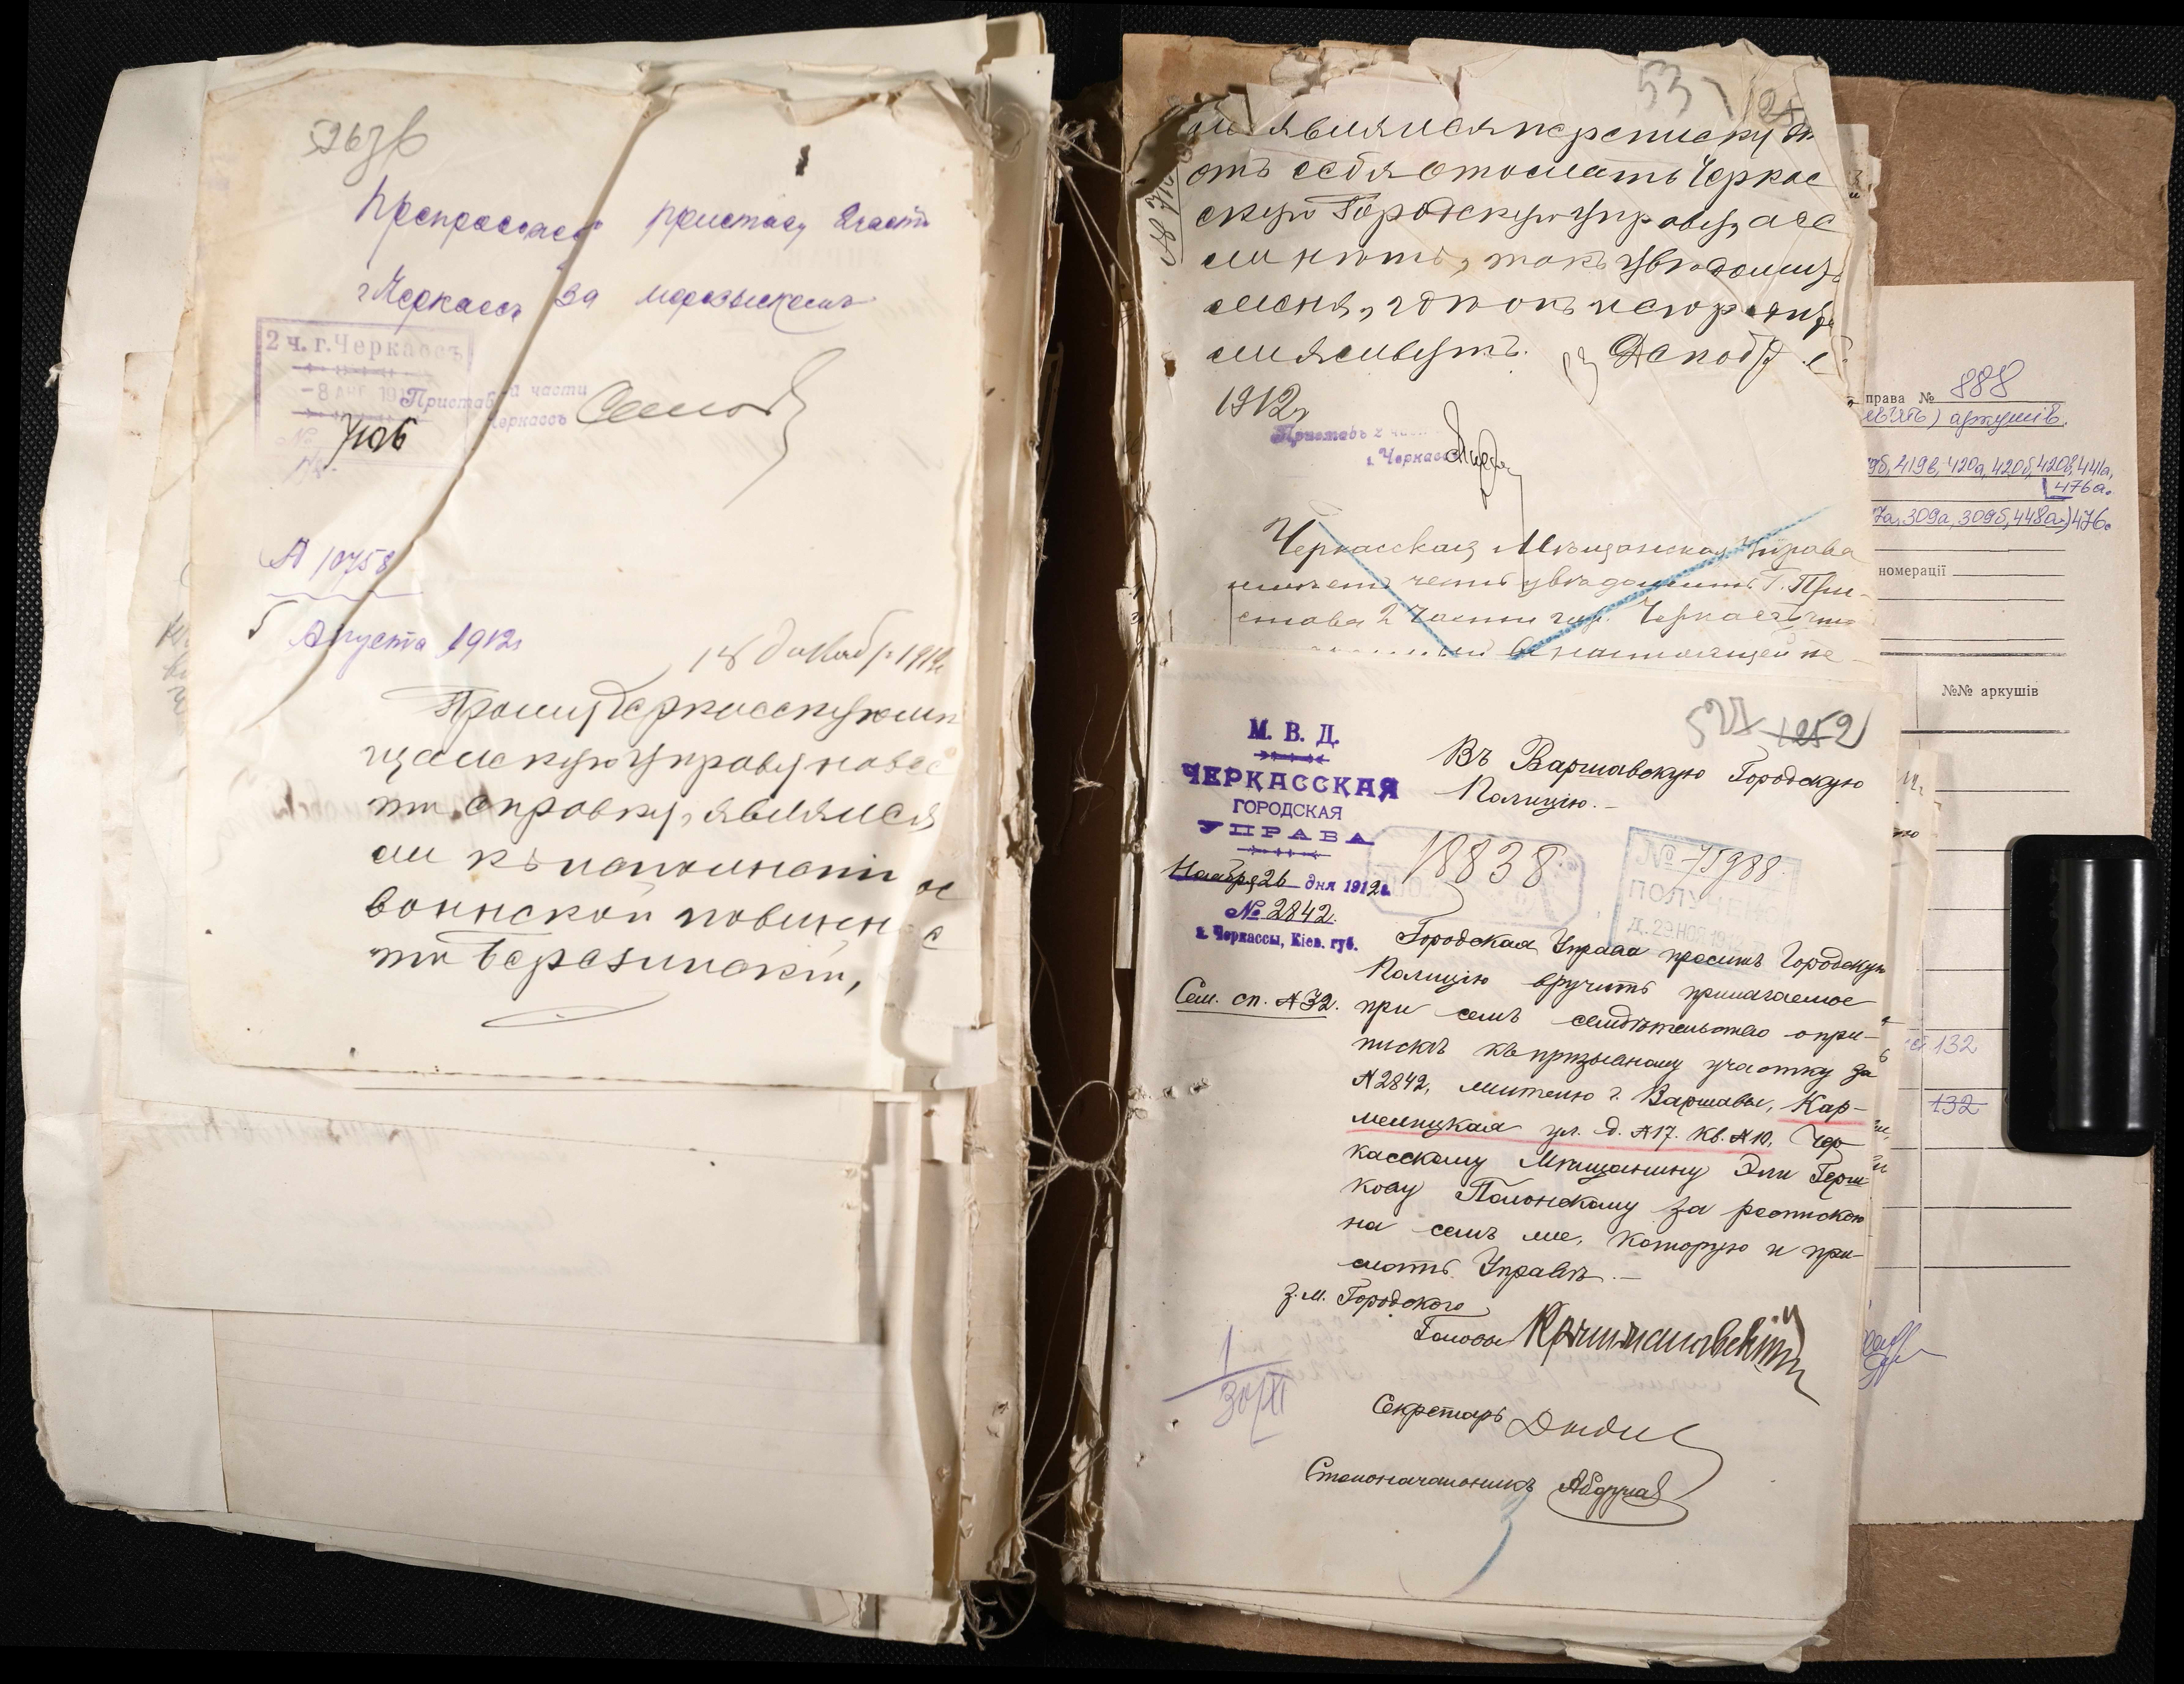 526 зв
Препровожд. приставу 2 части
г. Черкассъ за розыскомъ
2 ч. г. Черкассъ
-8 АВГ 191
№ 7106
Приставъ й части
Черкассъ
А 10758
5 Августа 1912 г
18 декабр. 1912
Прошу Черкасскую мѣ
щанскую Управу навес
ти справку, являлся
ли къ исполненію
воинской повиннос
ти Березинскій,
53
ли являлся переписку
отъ себя отослать Черкас
скую Городскую управу, а ес
ли нѣтъ, такъ увѣдомить
меня, гдѣ онъ
Декабр
1912 г
Приставъ 2 части
г. Черкассъ
Черкасская Мѣщанская Управа
имѣетъ честь увѣдомить Г. При-
става 2 Части гор. Черкассъ, что
въ настоящей пе-
М. В. Д.
ЧЕРКАССКАЯ
ГОРОДСКАЯ
УПРАВА
Ноября 26 дня 1912 г.
№ 2842.
г. Черкассы, Кіев. губ.
Сем. сп. № 32.
1252
Въ Варшавскую Городскую
Полицію.-
18838
№ 75988.
Д. 29 НОЯ 191
Городская Управа проситъ Городскую
Полицію вручить прилагаемое
при семъ свидѣтельство о при-
пискѣ къ призывному участку за
№ 2842, жителю г. Варшавы, Кар-
мелицкая ул. д. № 17. кв. № 10, Чер-
касскому Мѣщанину Эли Герш-
кову Полонскому за роспискою
на семъ же, которую и при-
слать Управѣ.-
З. м. Городского
Головы
Секретарь
Столоначальникъ
1
30/XI
права № 888
) аркушів.
419в, 420а, 420б, 420в, 441а,
476а.
7а, 309а, 309б, 448а) 476
номерації
№№ аркушів
132
132